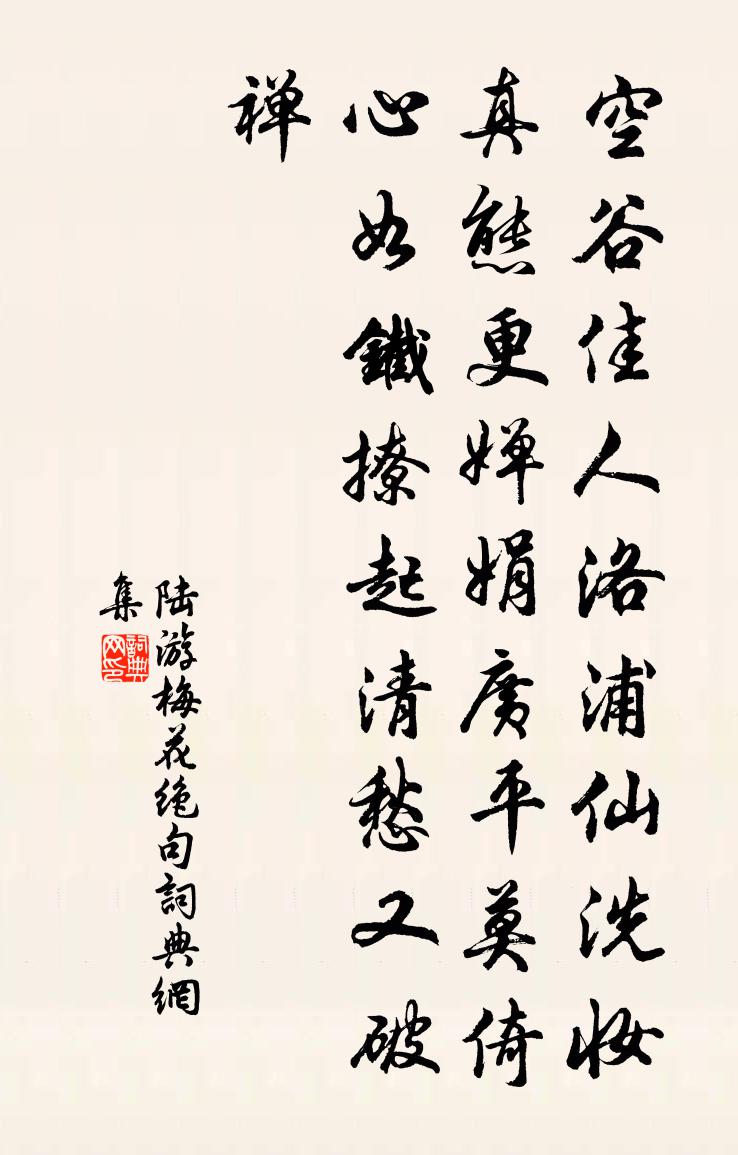 空谷佳人洛浦仙洗妆
真態更嬋娟廣平莫倚
心如鐵撩起清愁又破
禅
陆游梅花绝句詞典網
集
詞典
网印